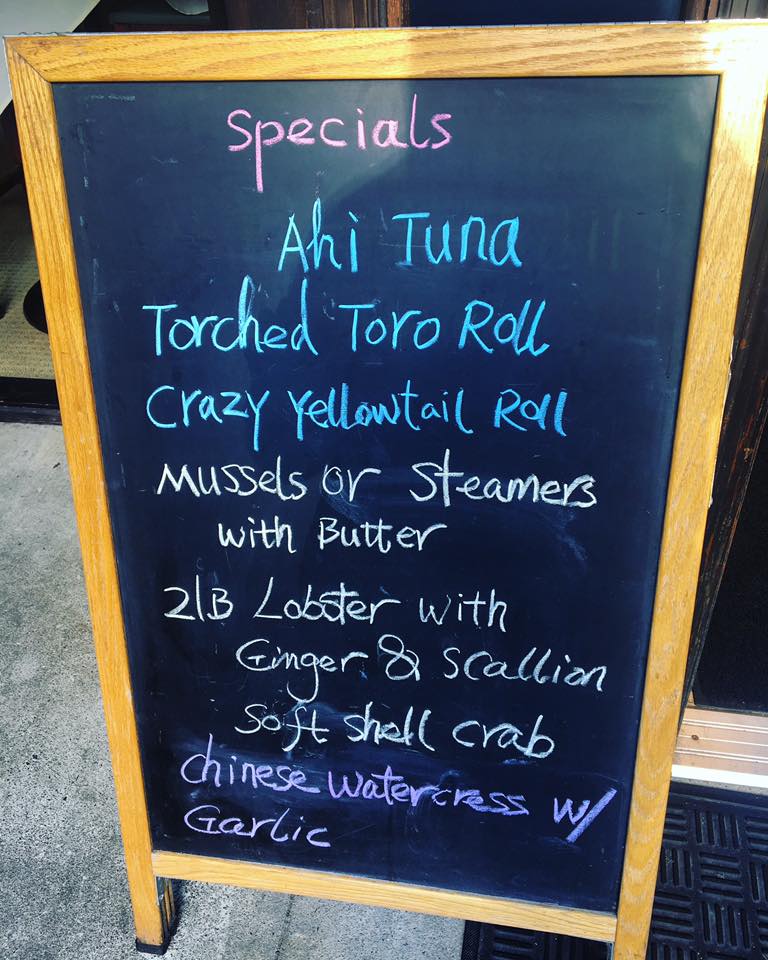 Specials
Ahi Tuna
Torched Toro Roll
Crazy Yellowtail Roll
Mussels or Steamers
with Butter
2lB Lobster with
Ginger & Scallion
Soft shell crab
Chinese Watercress w/
Garlic